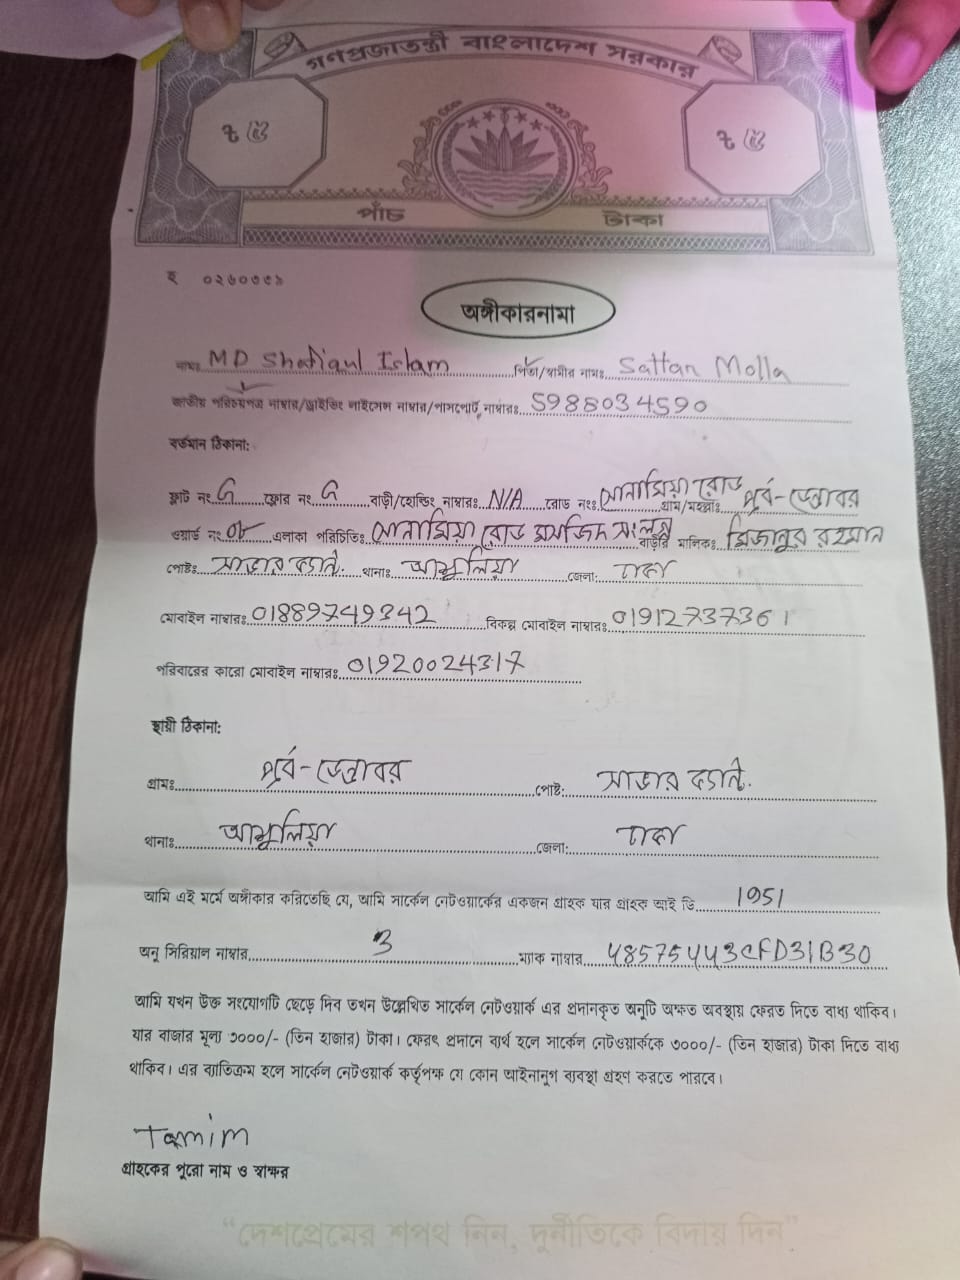 গণপ্রজাতন্ত্রী বাংলাদেশ সরকার
৳ ৫ ৳ ৫
পাঁচ টাকা
অঙ্গীকারনামা
নামঃ MD Shafiqul Islam পিতা/স্বামীর নামঃ Sattan Molla
জাতীয় পরিচয়পত্র নাম্বার/ড্রাইভিং লাইসেন্স নাম্বার/পাসপোর্ট নাম্বারঃ 5988034590
বর্তমান ঠিকানা:
ফ্লাট নং G ফ্লোর নং G বাড়ী/হোল্ডিং নাম্বারঃ N/A রোড নংঃ সোনামিয়া রোড গ্রাম/মহল্লাঃ পূর্ব-ডেন্ডাবর
ওয়ার্ড নং ০৮ এলাকা পরিচিতিঃ সোনামিয়া রোড মসজিদ সংলগ্ন বাড়ীর মালিকঃ মিজানুর রহমান
পোষ্টঃ সাভার ক্যান্ট. থানাঃ আশুলিয়া জেলা: ঢাকা
মোবাইল নাম্বারঃ 01889749342 বিকল্প মোবাইল নাম্বারঃ 01912737361
পরিবারের কারো মোবাইল নাম্বারঃ 01920024317
স্থায়ী ঠিকানা:
গ্রামঃ পূর্ব-ডেন্ডাবর পোষ্ট: সাভার ক্যান্ট.
থানাঃ আশুলিয়া জেলা: ঢাকা
আমি এই মর্মে অঙ্গীকার করিতেছি যে, আমি সার্কেল নেটওয়ার্কের একজন গ্রাহক যার গ্রাহক আই ডি 1951
অনু সিরিয়াল নাম্বার 3 ম্যাক নাম্বার 48575443CFD31B30
আমি যখন উক্ত সংযোগটি ছেড়ে দিব তখন উল্লেখিত সার্কেল নেটওয়ার্ক এর প্রদানকৃত অনুটি অক্ষত অবস্থায় ফেরত দিতে বাধ্য থাকিব।
যার বাজার মূল্য ৩০০০/- (তিন হাজার) টাকা। ফেরৎ প্রদানে ব্যর্থ হলে সার্কেল নেটওয়ার্ককে ৩০০০/- (তিন হাজার) টাকা দিতে বাধ্য
থাকিব। এর ব্যাতিক্রম হলে সার্কেল নেটওয়ার্ক কর্তৃপক্ষ যে কোন আইনানুগ ব্যবস্থা গ্রহণ করতে পারবে।
Tamim
গ্রাহকের পুরো নাম ও স্বাক্ষর
"দেশপ্রেমের শপথ নিন, দুর্নীতিকে বিদায় দিন"